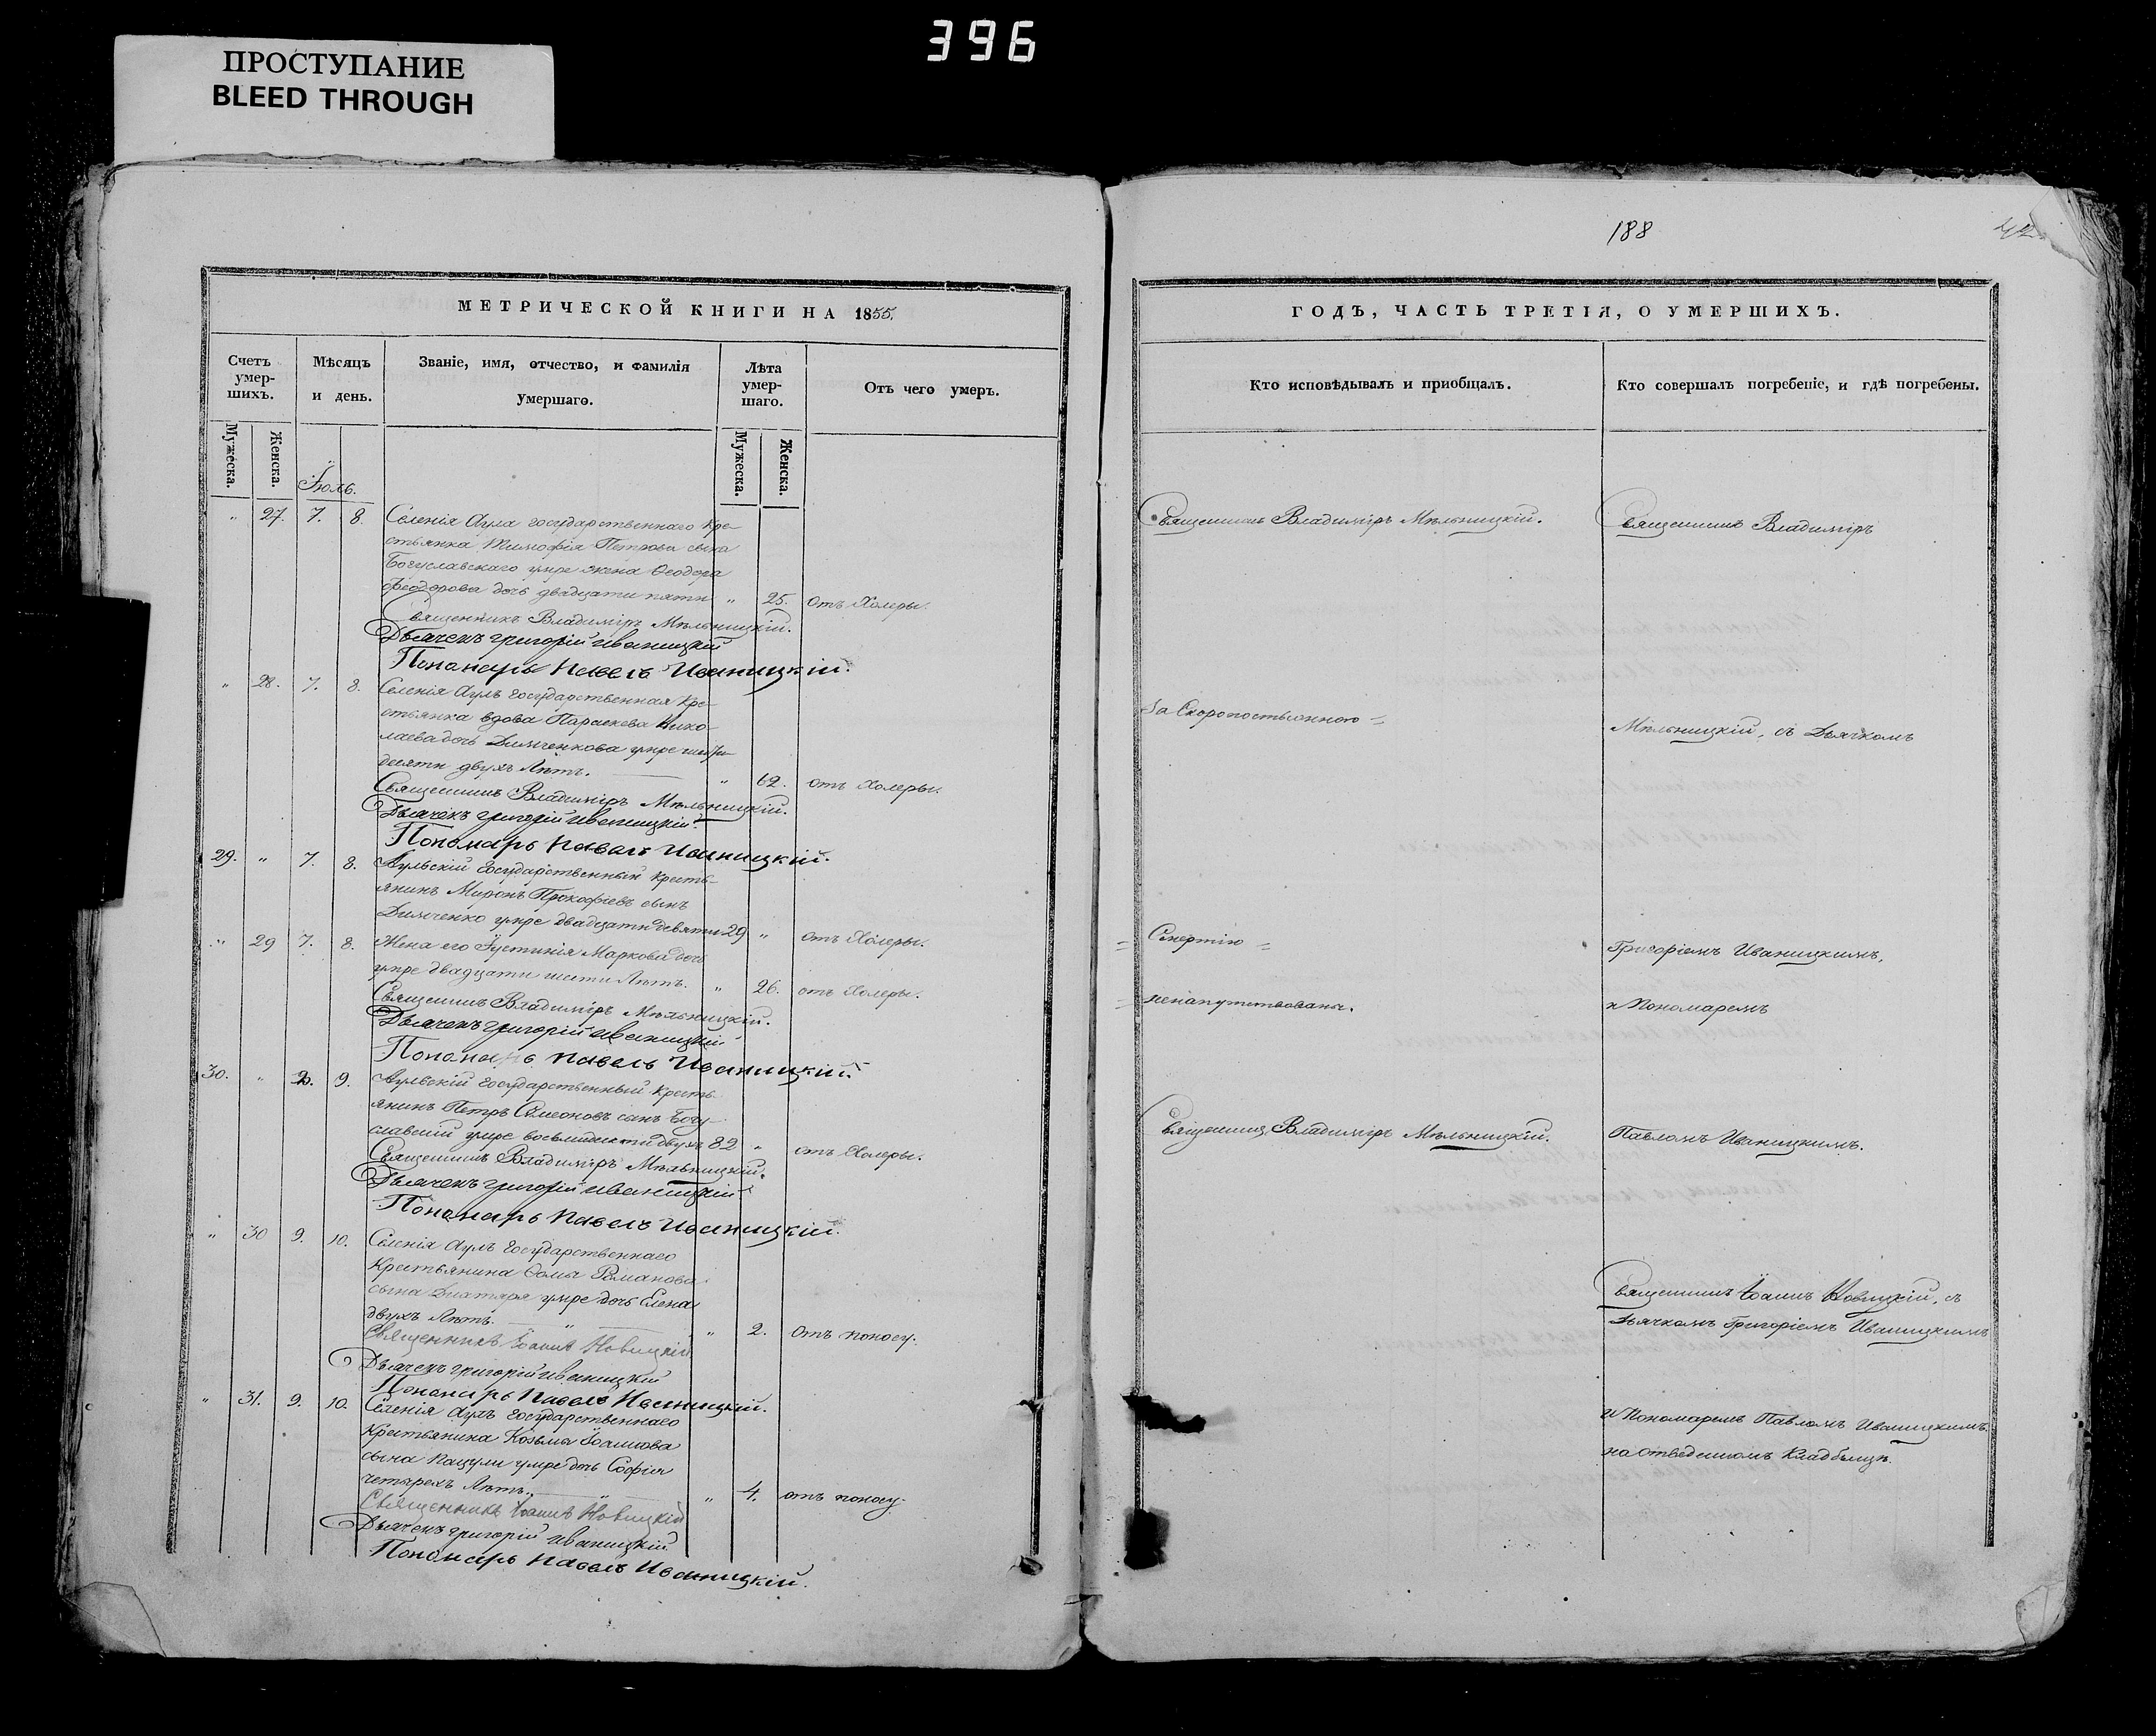 396
ПРОСТУПАНИЕ
BLEED THROUGH
МЕТРИЧЕСКОЙ КНИГИ НА 1855.
Счетъ умер-шихъ.
Мѣсяцъ и день.
Званіе, имя, отчество, и фамилія умершаго.
Лѣта умер-шаго.
Отъ чего умеръ.
Мужеска. Женска. Мужеска. Женска.
Іюль.
" 27. 7. 8. Селенія Аула государственнаго кре-
стьянина Тимофія Петрова сына
Богуславскаго умре жена Ѳеодора
Феодорова дочь двадцати пяти " 25. Отъ Холеры.
Священникъ Владиміръ Мѣльницкій.
Дьячекъ Григорій Иваницкій
Пономарь Павелъ Иваницкій.
" 28. 7. 8. Селенія Аулъ государственная Кре-
стьянка вдова Параскева Нико-
лаева дочь Димченкова умре шести-
десяти двухъ Лѣтъ. " 62. отъ Холеры.
Священникъ Владиміръ Мѣльницкій.
Дьячекъ Григорій Иваницкій.
Пономарь Павелъ Иваницкій.
29. " 7. 8. Аульскій Государственный кресть-
янинъ Миронъ Прокофіевъ сынъ
Димченко умре двадцати девяти 29 " отъ Холеры.
" 29 7. 8. Жена его Іустинія Маркова дочь
умре двадцати шести Лѣтъ. " 26. отъ Холеры.
Священникъ Владиміръ Мѣльницкій.
Дьячекъ Григорій Иваницкій
Пономарь Павелъ Иваницкій.
30. " 9. Аульскій Государственный кресть-
янинъ Петръ Симеоновъ сынъ Богу-
славскій умре восьмидесяти двухъ 82 " отъ Холеры.
Священникъ Владиміръ Мѣльницкій.
Дьячекъ Григорій Иваницкій
Пономарь Павелъ Иваницкій.
" 30 9. 10. Селенія Аулъ Государственнаго
Крестьянина Ѳомы Романова
сына умре дочь Елена
двухъ Лѣтъ. " 2. отъ поносу.
Священникъ Іоаннъ Новицкій
Дьячекъ Григорій Иваницкій
Пономарь Павелъ Иваницкій.
" 31. 9. 10. Селенія Аулъ Государственнаго
Крестьянина Козьмы Іоаннова
сына Пацули умре дочь Софія
четырехъ Лѣтъ. " 4. отъ поносу.
Священникъ Іоаннъ Новицкій
Дьячекъ Григорій Иваницкій
Пономарь Павелъ Иваницкій.
188
ГОДЪ, ЧАСТЬ ТРЕТІЯ, О УМЕРШИХЪ.
Кто исповѣдывалъ и пріобщалъ.
Кто совершалъ погребеніе, и гдѣ погребены.
Священникъ Владиміръ Мѣльницкій.
Священникъ Владиміръ
За Скоропостижною =
Мѣльницкій, съ Дьячкомъ
= Смертію =
Григоріемъ Иваницкимъ,
= ненапутствованы.
и Пономаремъ
Священникъ Владиміръ Мѣльницкій.
Павломъ Иваницкимъ.
Священникъ Іоаннъ Новицкій, съ
Дьячкомъ Григоріемъ Иваницкимъ
и Пономаремъ Павломъ Иваницкимъ.
на отведенномъ Кладбищѣ.